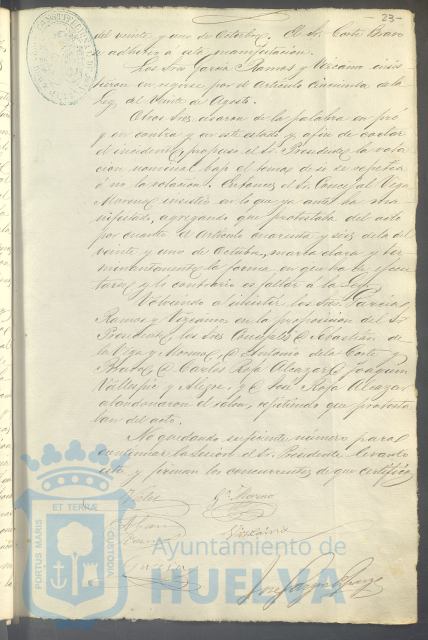 - 23 -
del veinte y uno de Octubre. El Sr. Corte Bravo
se adhiere á esta manifestacion.
Los Sres. Garcia Ramos y Vizcaino insis
tieron en regirse por el Artículo cincuenta de la
Ley, del Veinte de Agosto.
Otros Sres. usaron de la palabra en pró
y en contra y en este estado y, á fin de cortar
el incidente, propuso el Sr. Presidente la vota
cion nominal bajo el tema de si se repetia
ó no la votacion. Entonces el Sr. Concejal Vega
Moreno insistió en lo que ya antes ha ma
nifestado, agregando que protestaba del acto
por cuanto el Artículo cuarenta y seis de la del
veinte y uno de Octubre, marca clara y ter
minantemente la forma en que ha de ejecu
tarse y lo contrario es faltar á la Ley.
Volviendo á insistir los Sres. Garcia
Ramos y Vizcaino en la proposicion del Sr.
Presidente, los Sres. Concejales D. Sebastian de
la Vega y Moreno, D. Antonio de la Corte
Bravo, D. Carlos Rioja Alcazar, D. Joaquin
Vallespin y Alegre, y D. José Rioja Alcazar
abandonaron el salon, repitiendo que protesta
ban del acto.
No quedando suficiente número para
continuar la sesion el Sr. Presidente levantó
esta y firman los concurrentes de que certifico.
Gª. Moreno
Vizcaino
Garcia
ET TERRÆ
PORTUS MARIS
CUSTODIA
Ayuntamiento de
HUELVA